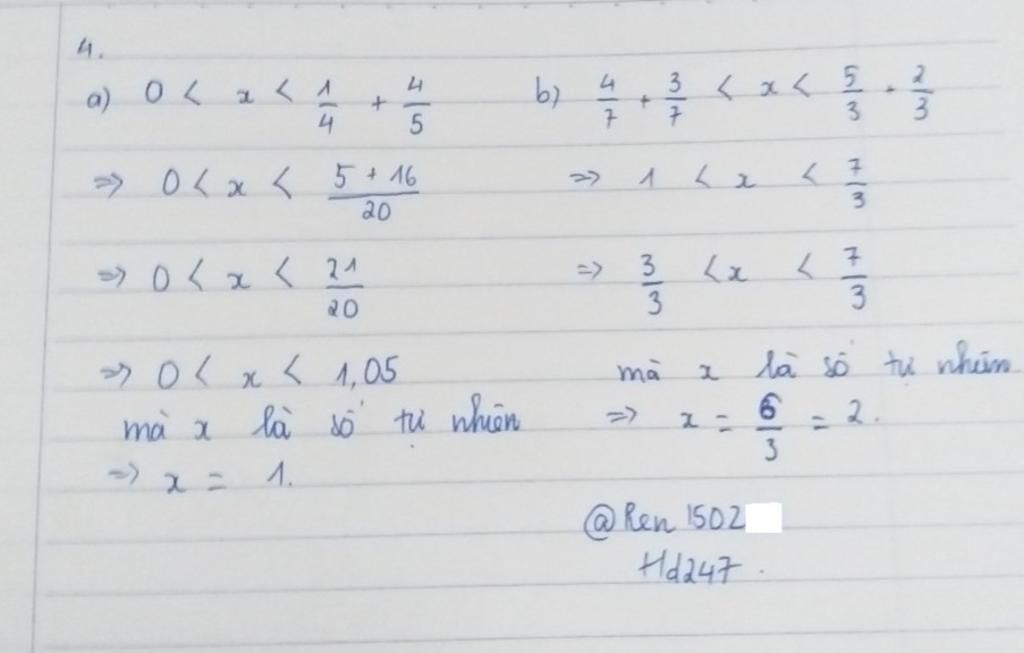 4.
a) 0 < x < 1/4 + 4/5
⇒ 0 < x < (5 + 16)/20
⇒ 0 < x < 21/20
⇒ 0 < x < 1,05
mà x là số tự nhiên
⇒ x = 1.
b) 4/7 + 3/7 < x < 5/3 + 2/3
⇒ 1 < x < 7/3
⇒ 3/3 < x < 7/3
mà x là số tự nhiên
⇒ x = 6/3 = 2.
@Ren 1502
Hd247.